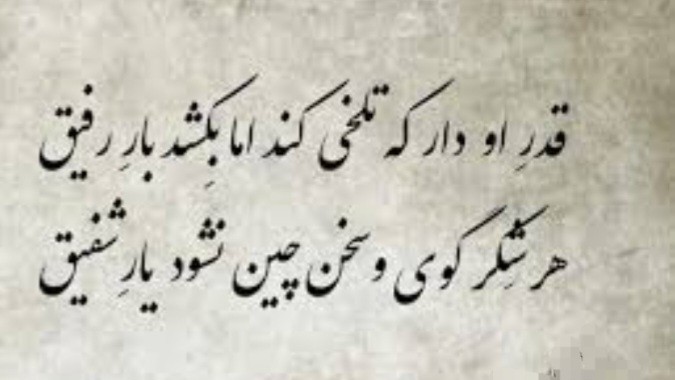 قدرِ او دار که تلخی کند اما بِکشد بارِ رفیق
هر شِکر گوی و سخن چین نشود یارِ شفیق